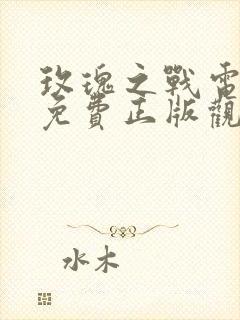 玫瑰之戰電
免費正版觀
水木